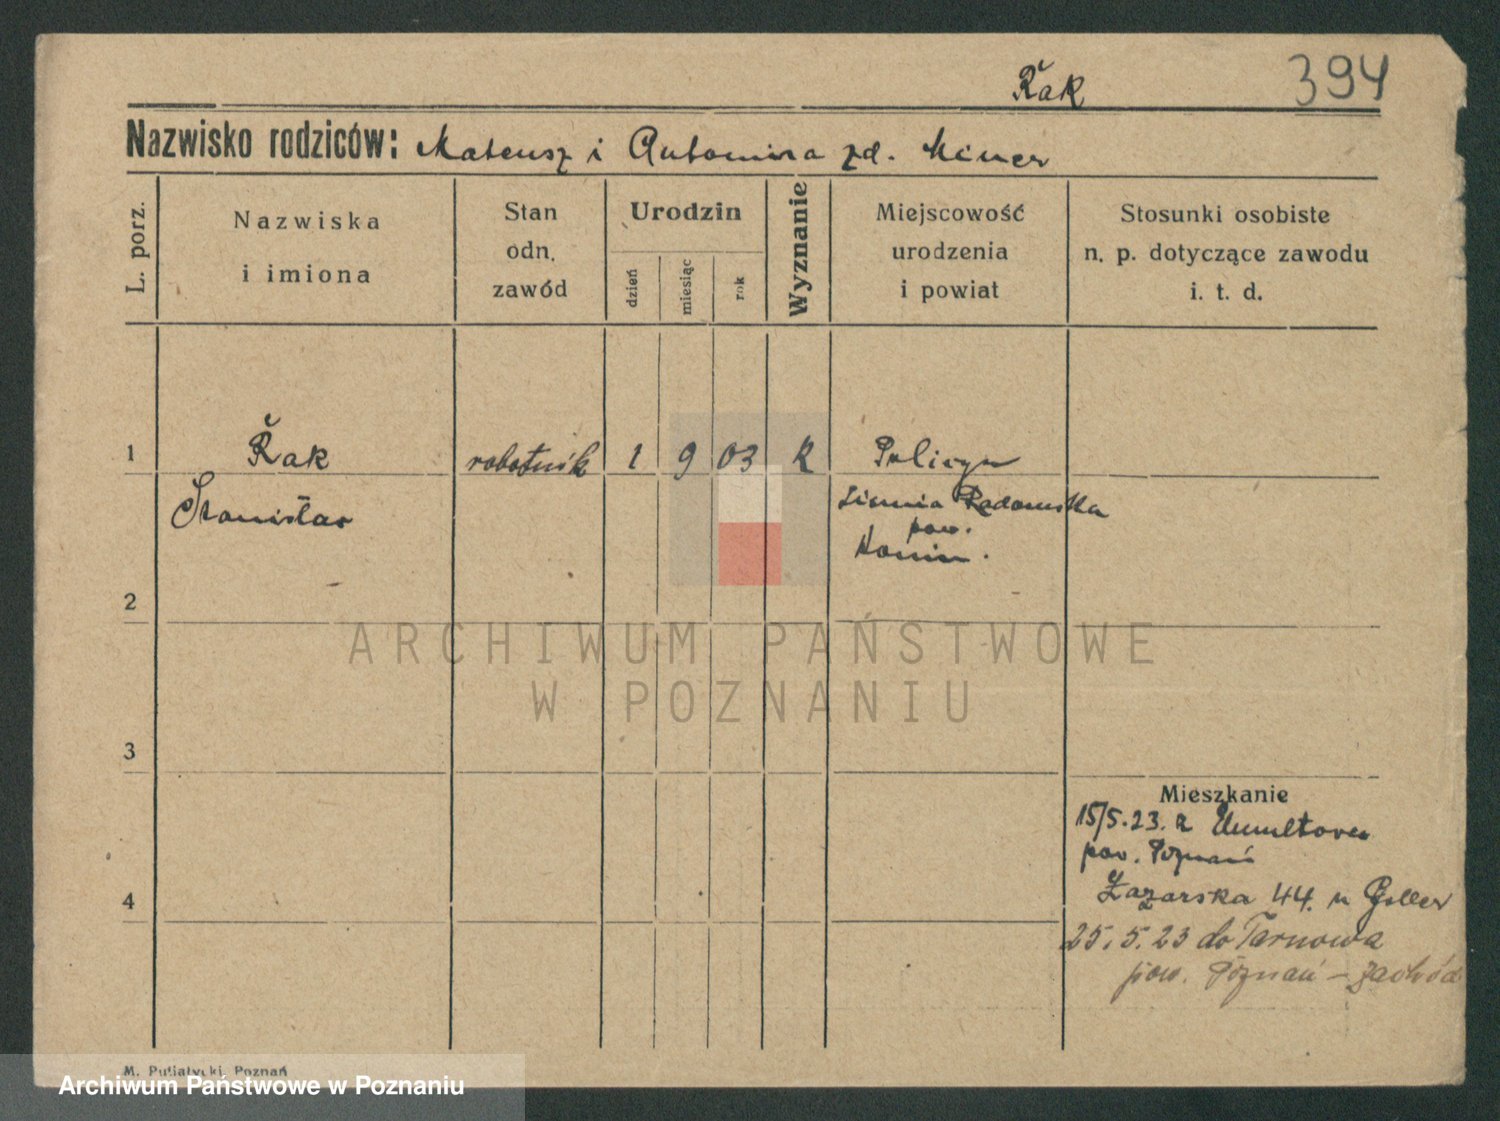 Řak
394
Nazwisko rodziców: Mateusz i Antonina zd. Miner
L. porz.
Nazwiska
i imiona
Stan
odn.
zawód
Urodzin
dzień
miesiąc
rok
Wyznanie
Miejscowość
urodzenia
i powiat
Stosunki osobiste
n. p. dotyczące zawodu
i. t. d.
1 Řak robotnik 1 9 03 R
Stanisław
Ziemia Radomska
pow.
Konin.
2
ARCHIWUM PAŃSTWOWE
W POZNANIU
3
Mieszkanie
15/5.23. z Umultowa
pow. Poznań
4
Łazarska 44. u
25.5.23 do Tarnowa
pow. Poznań – Zachód
M. Putiatycki, Poznań
Archiwum Państwowe w Poznaniu